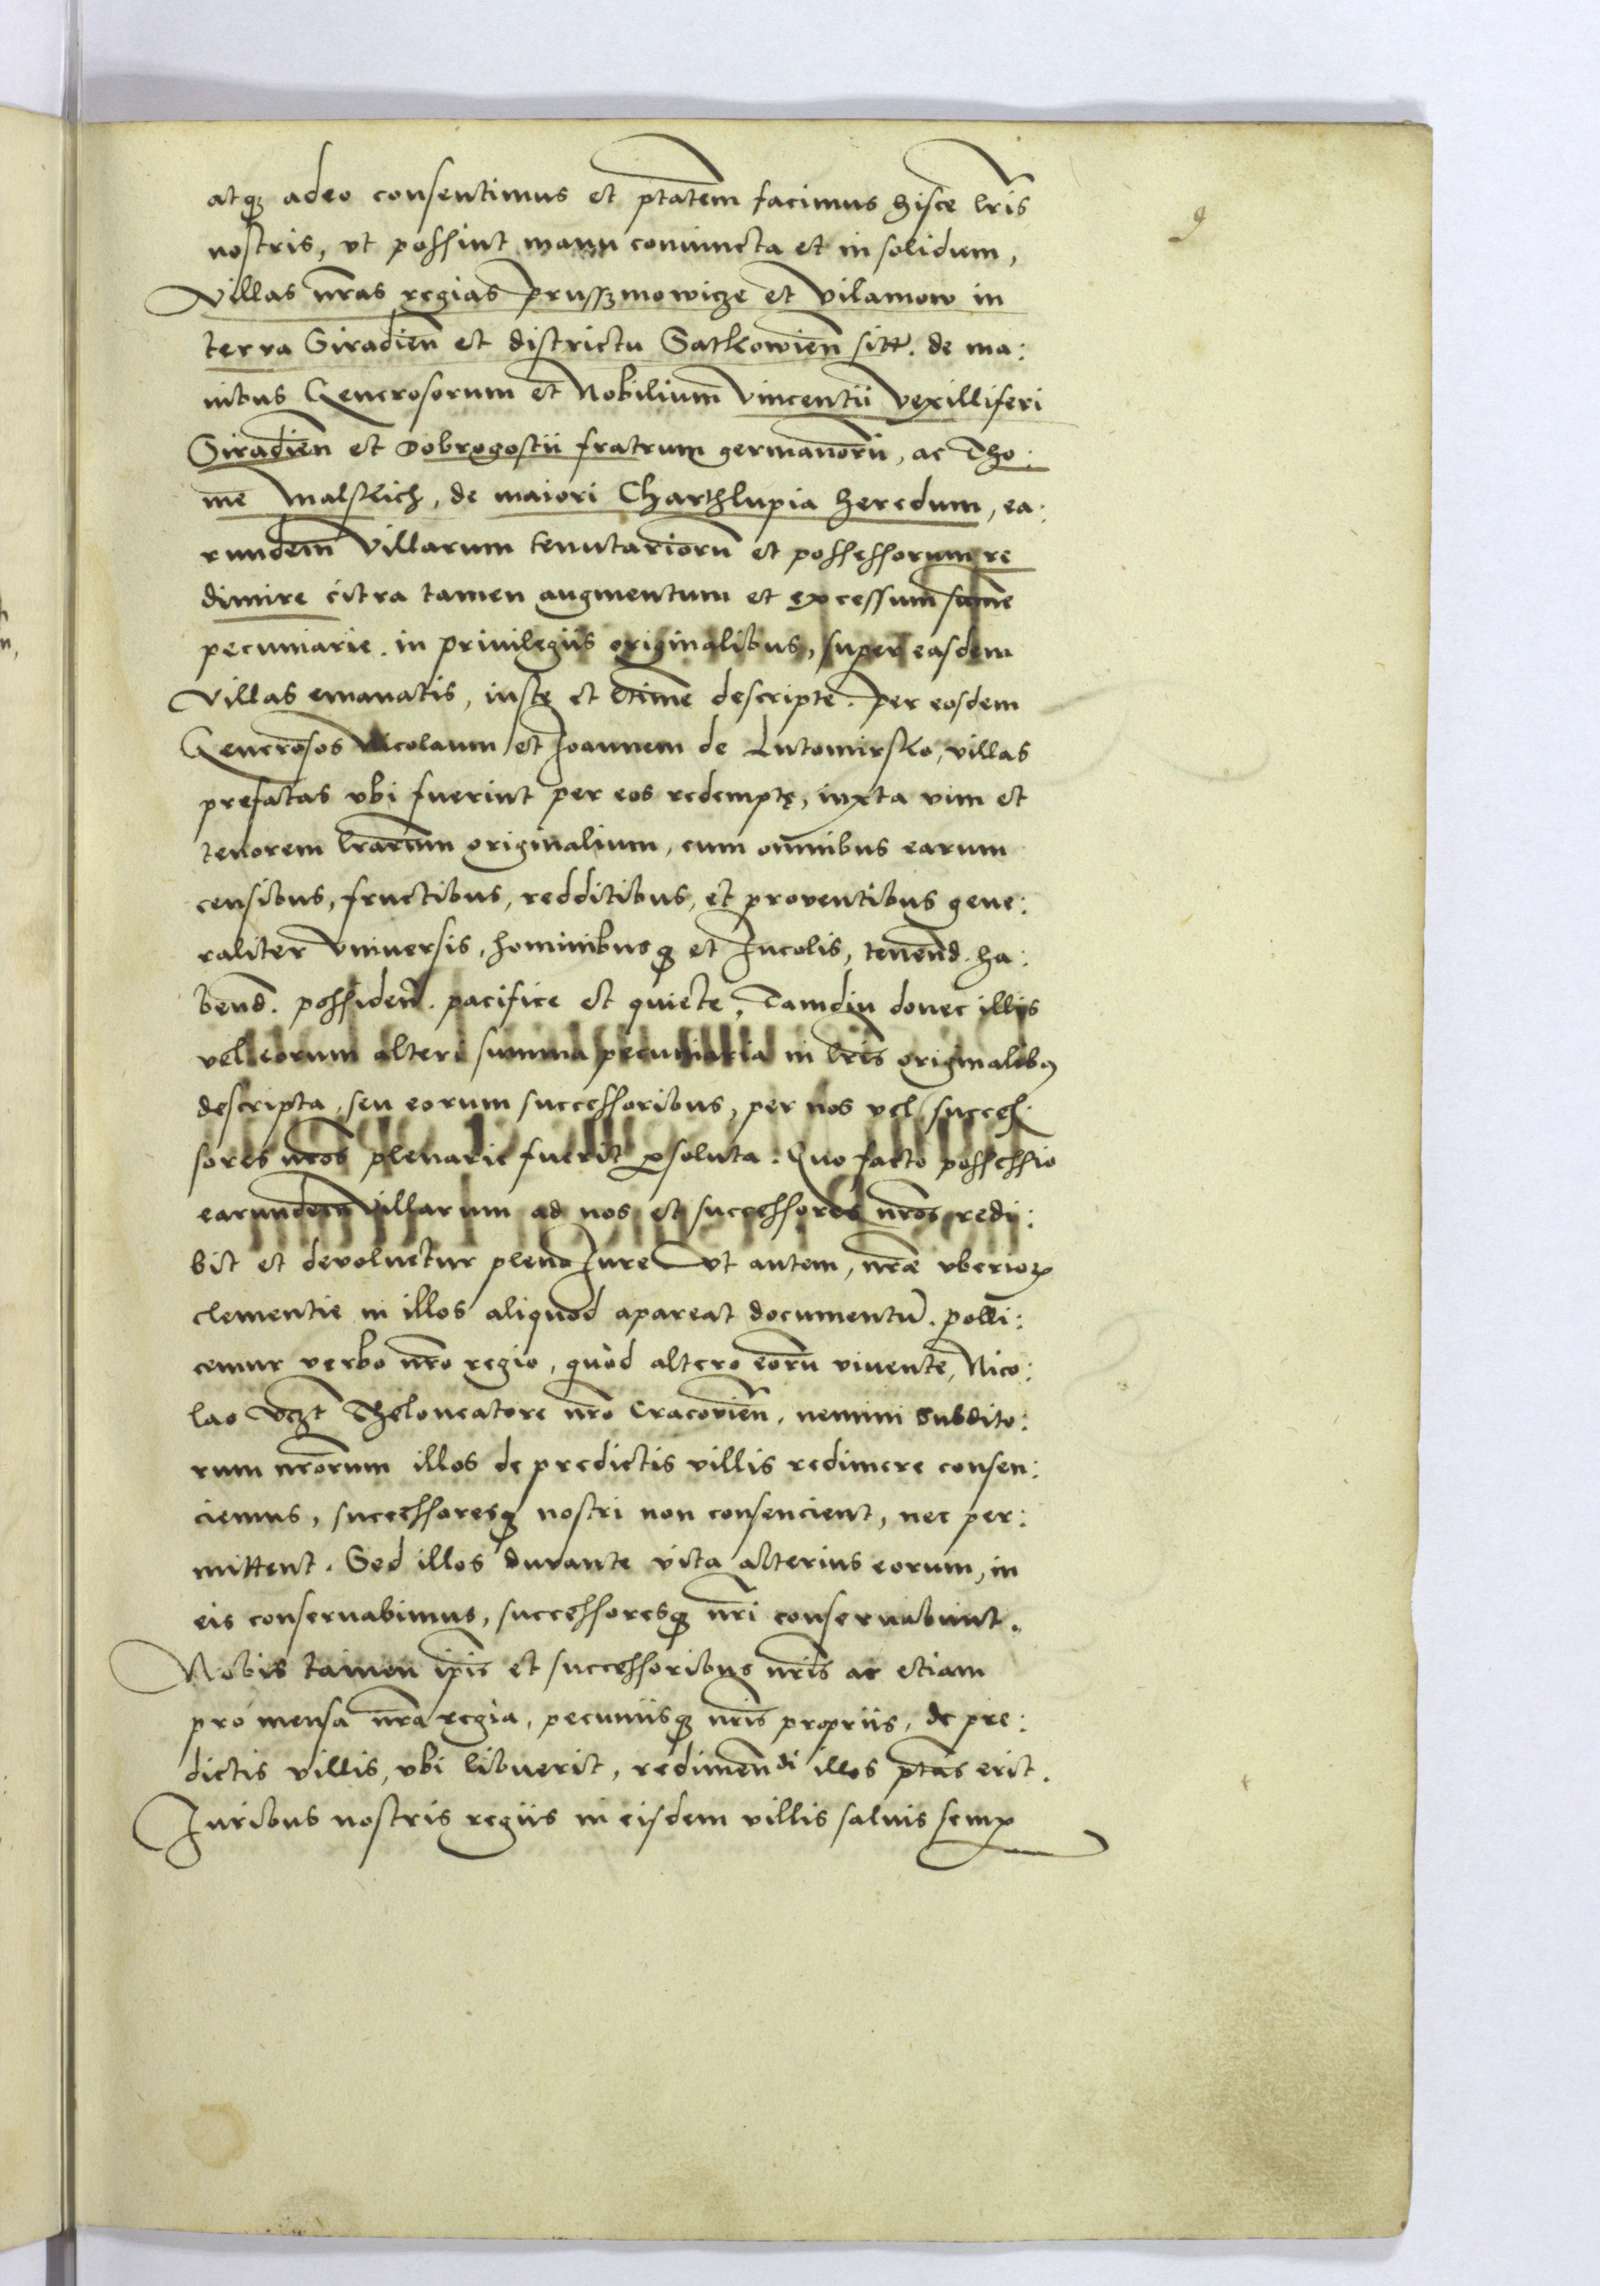 9
atq₃ adeo consentimus et ptātem facimus hisce lr̄is
nostris, vt possint manu coniuncta et in solidum,
Villas nr̄as regias Prussmowicze et Vilamow in
terra Siradien̄ et districtu Sathkowien̄ sitt. de ma:
nibus Generosorum et Nobilium Vincentii Vexilliferi
Siradien̄ et Dobrogostii fratrum germanorū, ac Tho:
me Malskich, de maiori Charthlupia heredum, ea:
rundem Villarum tenutariorū et possessorum re
dimire citra tamen augmentum et excessum sum̄e
pecuniarie. in priuilegiis originalibus, super easdem
Villas emanatis, iuste et l̄time descripte. Per eosdem
Generosos Nicolaum et Joannem de Lutomirsko, villas
prefatas vbi fuerint per eos redemptę, iuxta vim et
tenorem lr̄arum originalium, cum omnibus earum
censibus, fructibus, redditibus, et prouentibus gene:
raliter Vniuersis, hominibusq₃ et Incolis, tenend. ha:
bend. possiden̄. pacifice et quiete, Tamdiu donec illis
vel eorum alteri summa pecuniaria in lr̄is originalibꝰ
descripta, seu eorum successoribus, per nos vel succes:
sores nr̄os plenarie fuerit ꝑsoluta. Quo facto possessio
earundem Villarum ad nos et successores nr̄os redi:
bit et devoluetur pleno Jure Vt autem, nr̄æ vberioꝝ
clementie in illos aliquod apareat documentū. polli:
cemur verbo nr̄o regio, quòd altero eorū viuente, Nico:
lao vcz̄t Theloneatore nr̄o Cracovien̄, nemini Subdito:
rum nr̄orum illos de predictis villis redimere consen:
ciemus, successoresq₃ nostri non consencient, nec per:
mittent. Sed illos durante vita alterius eorum, in
eis conseruabimus, successoresq₃ nr̄i conseruabunt.
Nobis tamen ip̄is et successoribus nr̄is ac etiam
pro mensa nr̄a regia, pecuniisq₃ nr̄is propriis, de pre:
dictis villis, vbi libuerit, redimendi illos ptās erit.
Juribus nostris regiis in eisdem villis saluis semꝑ